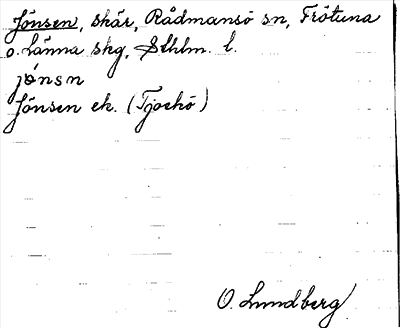 Jönsen, skär, Rådmansö sn, Frötuna
o. Länna skg, Sthlm l.
jönsn
Jönsen ek. (Tjockö)
O. Lundberg